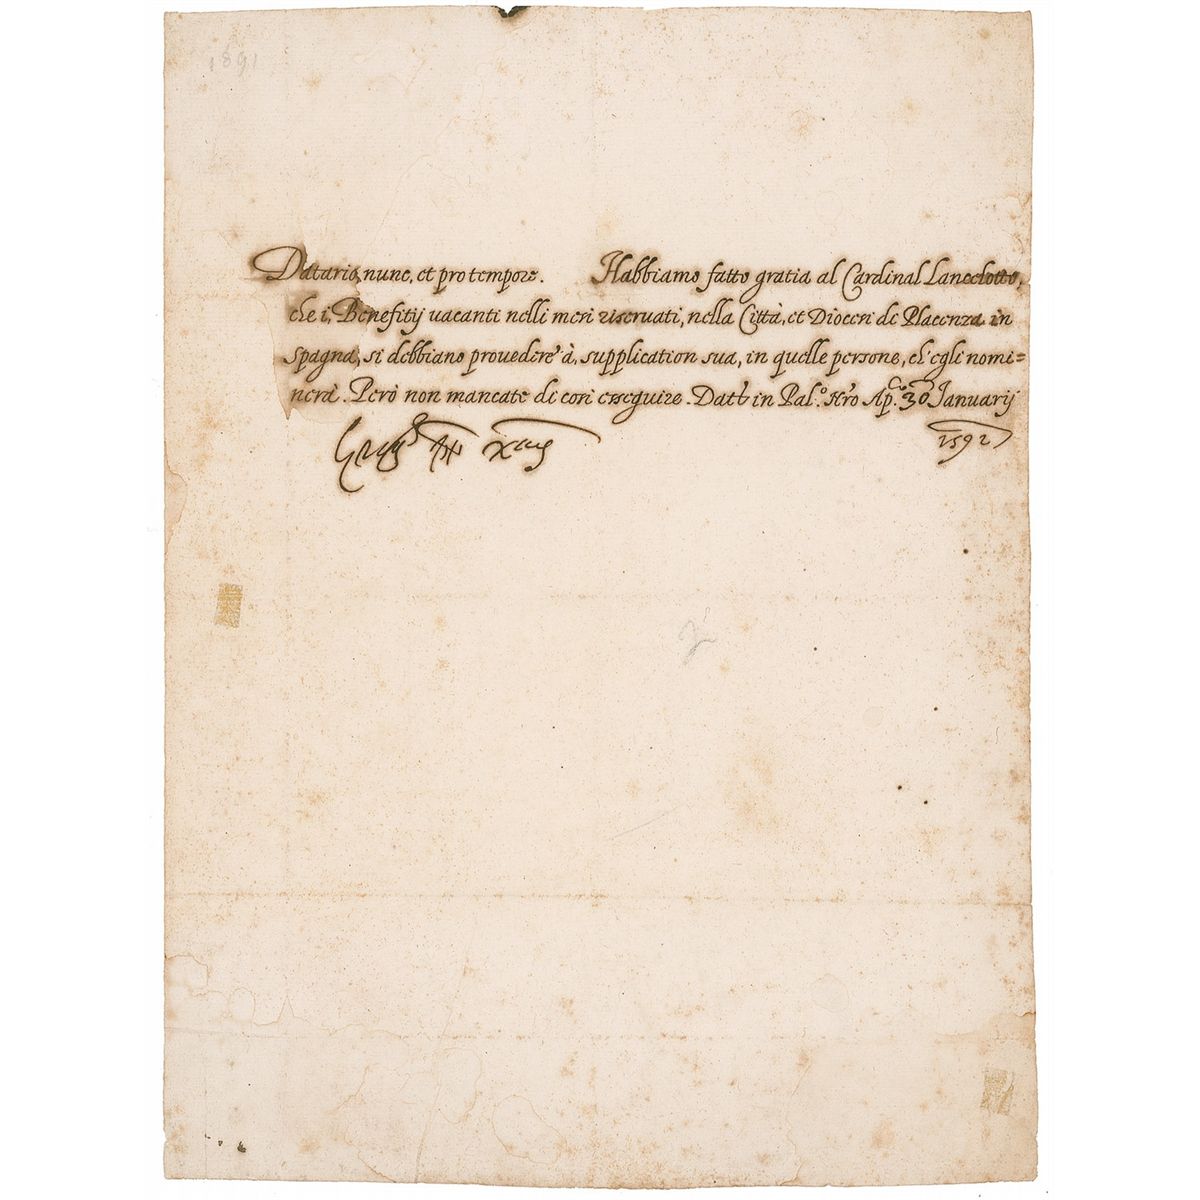 1891
Datario, nunc, et pro tempore. Habbiamo fatto gratia al Cardinal Lancelotto,
che i Benefitij uacanti nelli mesi riseruati, nella Città, et Diocesi de Placenza in
spagna, si debbiano prouedere à supplication sua, in quelle persone, ch'egli nomi=
nerà. Però non mancate di cosi esseguire. Dat˜ in Pal.º Nr̃o Ap.co 30 Januarij
1592